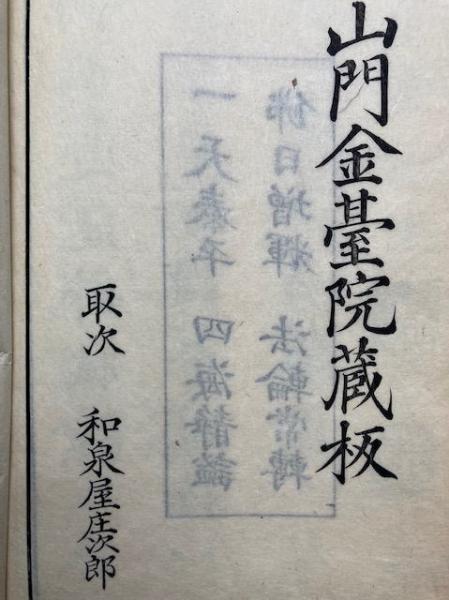 山門金臺院蔵板
佛日増輝 法輪常轉
一天泰平 四海静謐
取次 和泉屋庄次郎